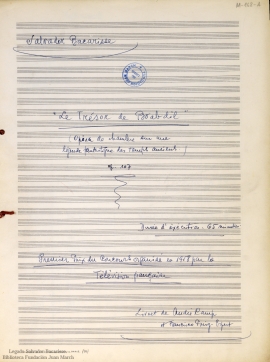 Salvador Bacarisse
"Le Trésor de Boabdil"
(Opéra de chambre sur une
légende fantastique des temps anciens)
op 107
Durée d'exécution: 65 minutes
Premier Prix du Concours organisé en 1958 par la
Télévision française
Livret de André Camp
et
Legado Salvador Bacarisse
Biblioteca Fundación Juan March